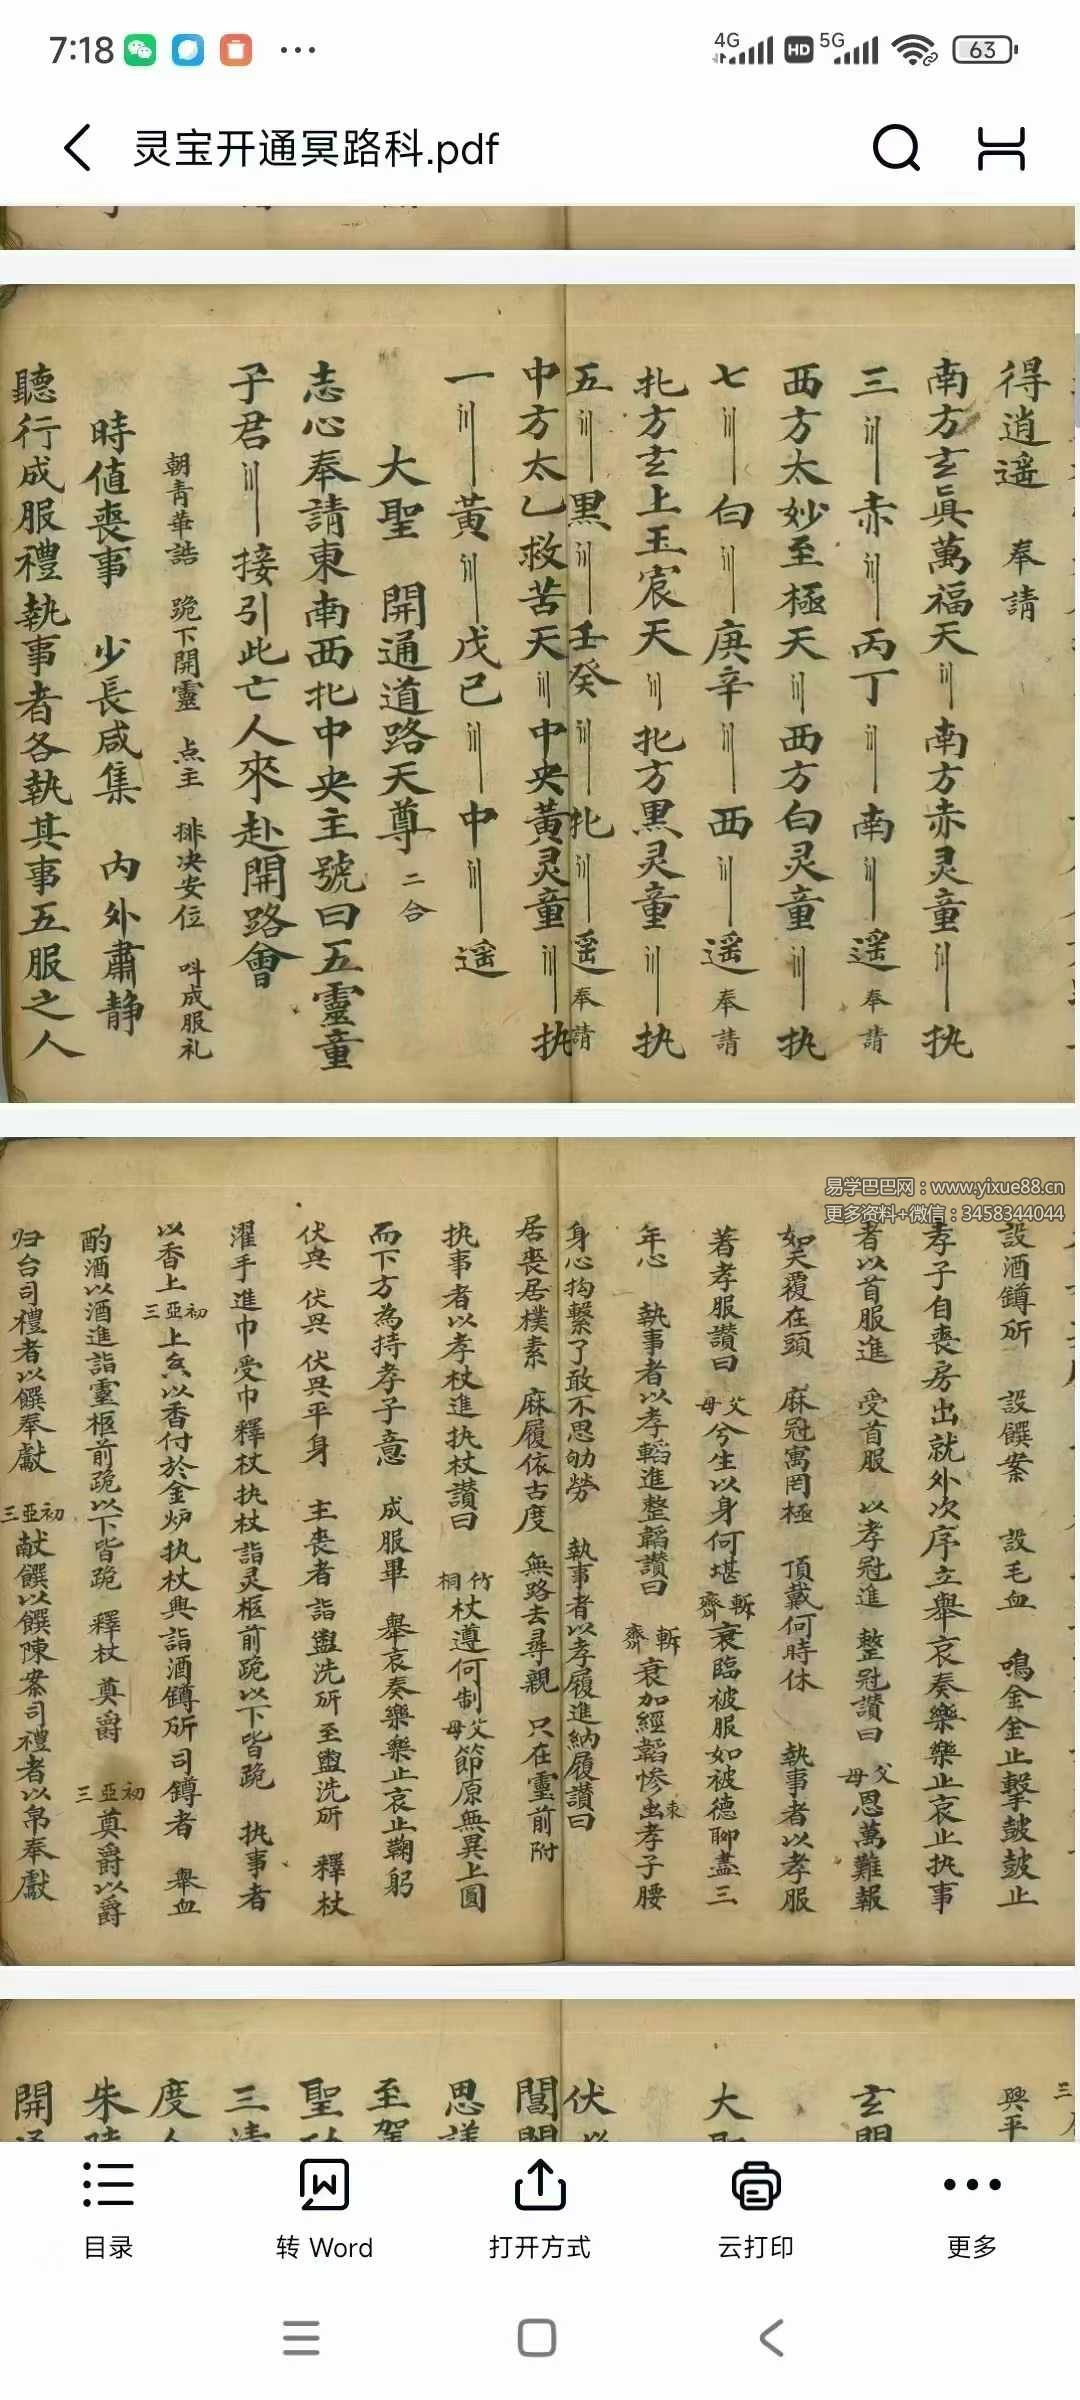 7:18
4G
HD
5G
63
灵宝开通冥路科.pdf
得逍遥 奉請
南方玄眞萬福天 南方赤灵童 执
三 赤 丙丁 南 遥 奉請
西方太妙至極天 西方白灵童 执
七 白 庚辛 西 遥 奉請
北方玄上玉宸天 北方黑灵童 执
五 黑 壬癸 北 遥 奉請
中方太乙救苦天 中央黃灵童 执
一 黃 戊己 中 遥
大聖 開通道路天尊 二合
志心奉請東南西北中央主號曰五靈童
子君 接引此亡人來赴開路會
朝青華誥 跪下開靈 点主 排决安位 呌成服礼
時值喪事 少長咸集 内外肅静
聽行成服禮執事者各執其事五服之人
易学巴巴网：www.yixue88.cn
更多资料+微信：3458344044
設酒鐏所 設饌案 設毛血 鳴金金止擊皷皷止
孝子自喪房出就外次序立舉哀奏樂樂止哀止执事
者以首服進 受首服 以孝冠進 整冠讃曰 父母恩萬難報
如天覆在頭 麻冠寓罔極 頂戴何時休 執事者以孝服
著孝服讃曰 父母兮生以身何堪 斬齊衰臨被服如被德聊盡三
年心 執事者以孝韜進整韜讃曰 斬齊衰加經韜惨出孝子腰
身心拘繫了敢不思劬勞 執事者以孝履進納履讃曰
居喪居樸素 麻履依古度 無路去尋親 只在靈前附
执事者以孝杖進执杖讃曰 竹桐杖遵何制父母節原無異上圓
而下方為持孝子意 成服畢 舉哀奏樂樂止哀止鞠躬
伏㒷 伏㒷 伏㒷平身 主喪者詣盥洗所至盥洗所 釋杖
濯手進巾受巾釋杖执杖詣灵柩前跪以下皆跪 执事者
以香上 初亞三上香以香付於金炉执杖興詣酒鐏所司鐏者 舉血
酌酒以酒進詣靈柩前跪以下皆跪 釋杖 奠爵 初亞三奠爵以爵
归台司禮者以饌奉獻 初亞三献饌以饌陳案司禮者以帛奉獻
興平
玄
大
伏
閶
思
至駕
聖
三清
度人
朱陵
開通
目录
转 Word
打开方式
云打印
更多